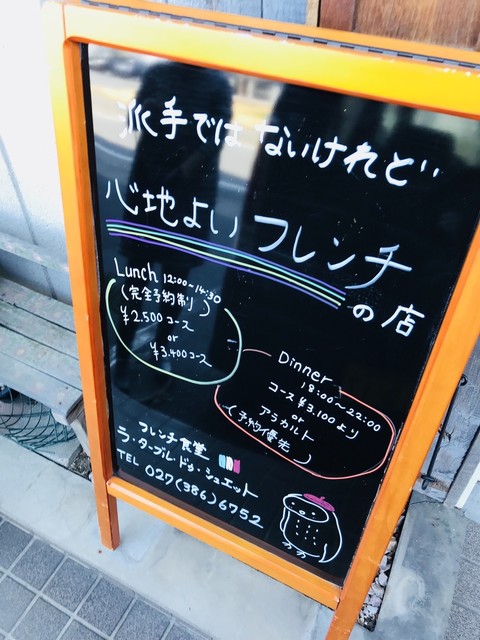 派手ではないけれど‥
心地よいフレンチ
の店
Lunch 12:00〜14:30
(完全予約制)
¥2.500コース
or
¥3.400コース
Dinner
18:00〜22:00
コース¥3.100より
or
アラカルト
(予約優先)
フレンチ食堂
ラ・ターブル・ドゥ・シュエット
TEL 027(386)6752